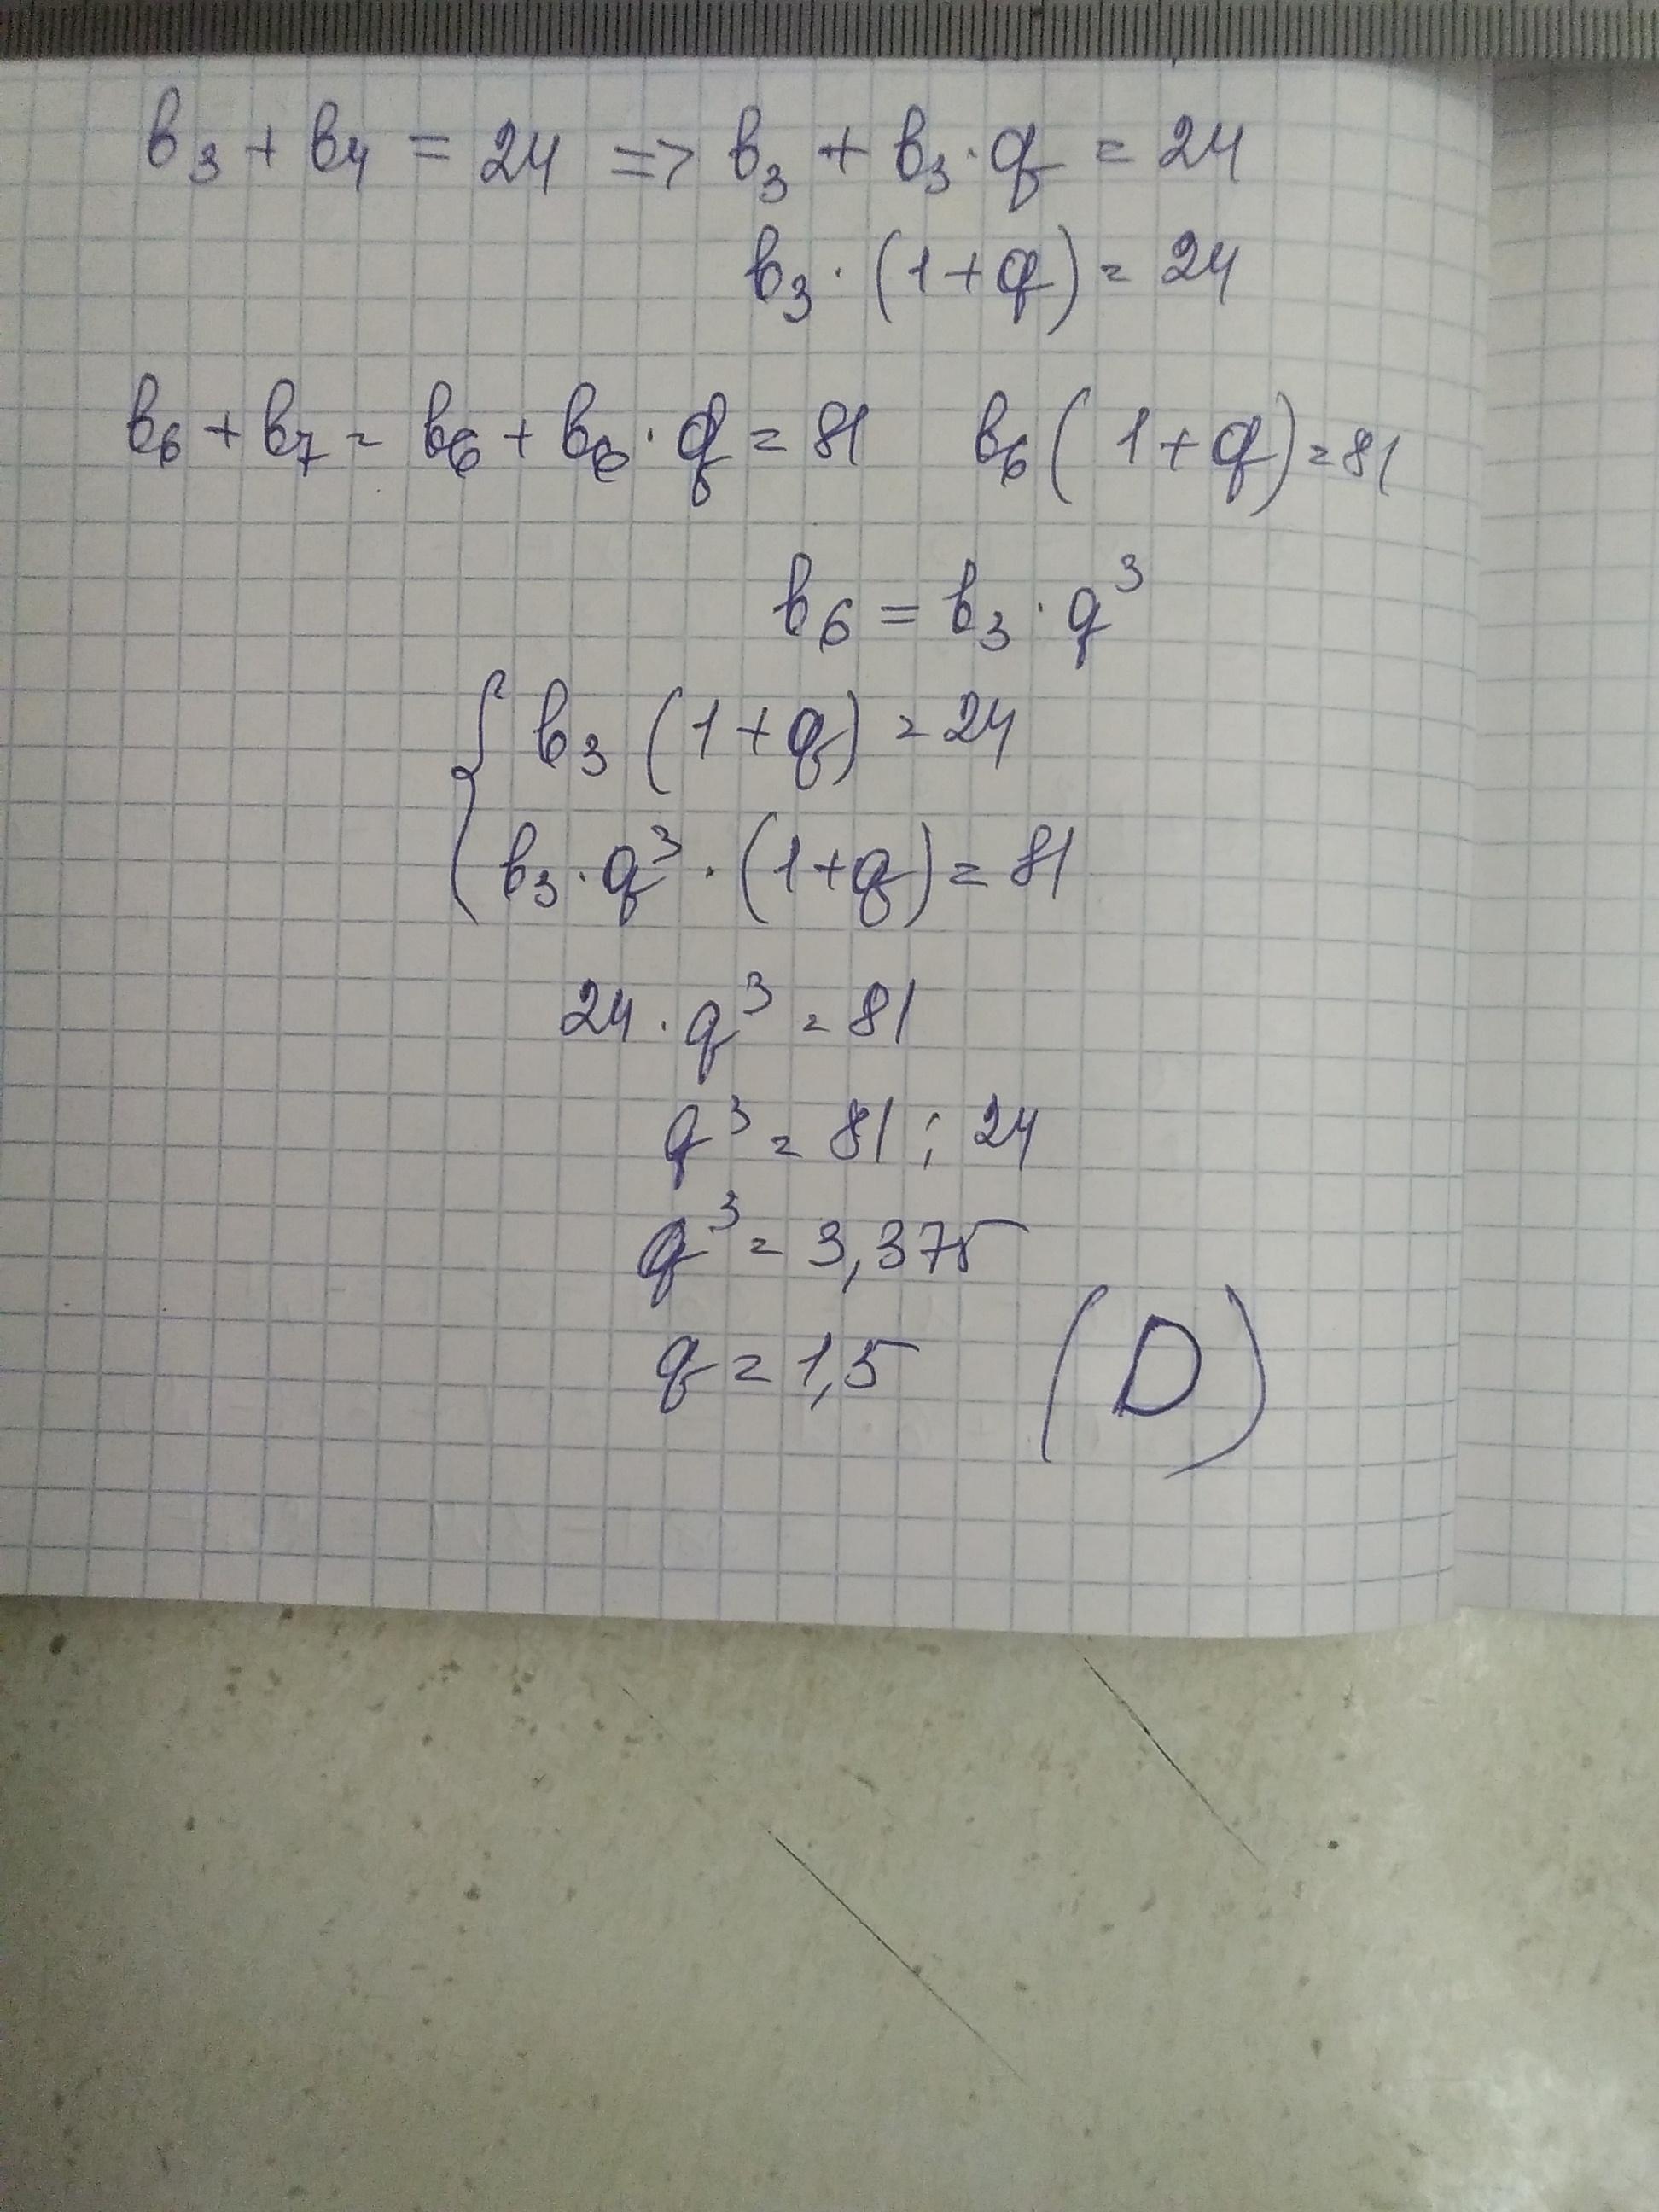 b₃ + b₄ = 24 => b₃ + b₃ · q = 24
b₃ · (1+q) = 24
b₆ + b₇ = b₆ + b₆ · q = 81 b₆ (1+q) = 81
b₆ = b₃ · q³
{ b₃ (1+q) = 24
b₃ · q³ · (1+q) = 81
24 · q³ = 81
q³ = 81 : 24
q³ = 3,375
q = 1,5 (D)